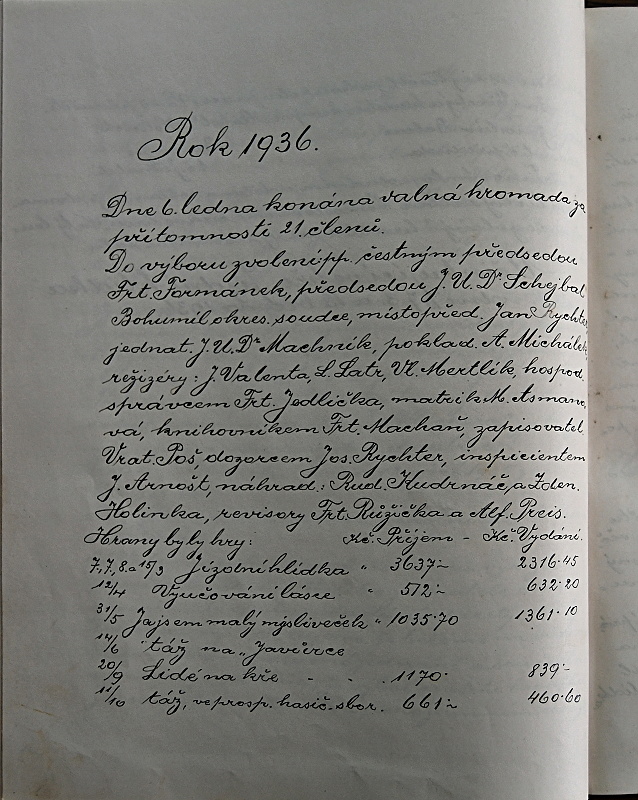 Rok 1936.
Dne 6. ledna konána valná hromada za
přítomnosti 21. členů.
Do výboru zvoleni pp. čestným předsedou
Frt. Formánek, předsedou J.U.Dr Schejbal
Bohumil okres. soudce, místopřed. Jan Rychter
jednat. J.U.Dr Machník, poklad. A. Michálek,
režizéry: J. Valenta, L. Latr, Vl. Mertlík, hospod.
správcem Frt. Jedlička, matrik. M. Asmano-
vá, knihovníkem Frt. Machaň, zapisovatel.
Vrat. Poš, dozorcem Jos. Rychter, inspicientem
J. Arnošt, náhrad.: Rud. Hudrnáč, a Zden.
Holinka, revisory Frt. Růžička a Alf. Preis.
Hrany byly hry: Kč. Příjem - Kč. Vydání.
7, 7, 8. a 15/3 Jízdní hlídka " 3637·- 2316·45
12/4 Vyučování lásce " 512·- 632·20
31/5 Já jsem malý mysliveček " 1035·70 1361·10
14/6 táž na „Javůrce
20/9 Lidé na kře - - 1170· 839·-
11/10 táž, ve prosp. hasič. sbor. 661·- 460·60